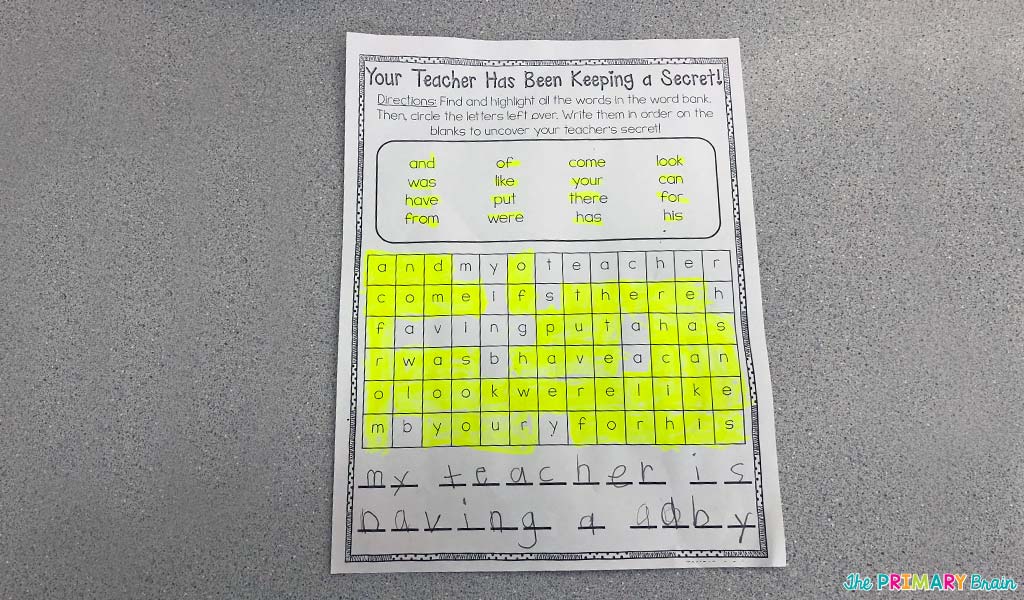 Your Teacher Has Been Keeping a Secret!
Directions: Find and highlight all the words in the word bank.
Then, circle the letters left over. Write them in order on the
blanks to uncover your teacher's secret!
and of come look
was like your can
have put there for
from were has his
a n d m y o t e a c h e r
c o m e i f s t h e r e h
f a v i n g p u t a h a s
r w a s b h a v e a c a n
o l o o k w e r e l i k e
m b y o u r y f o r h i s
my teacher is
having a
The PRIMARY Brain